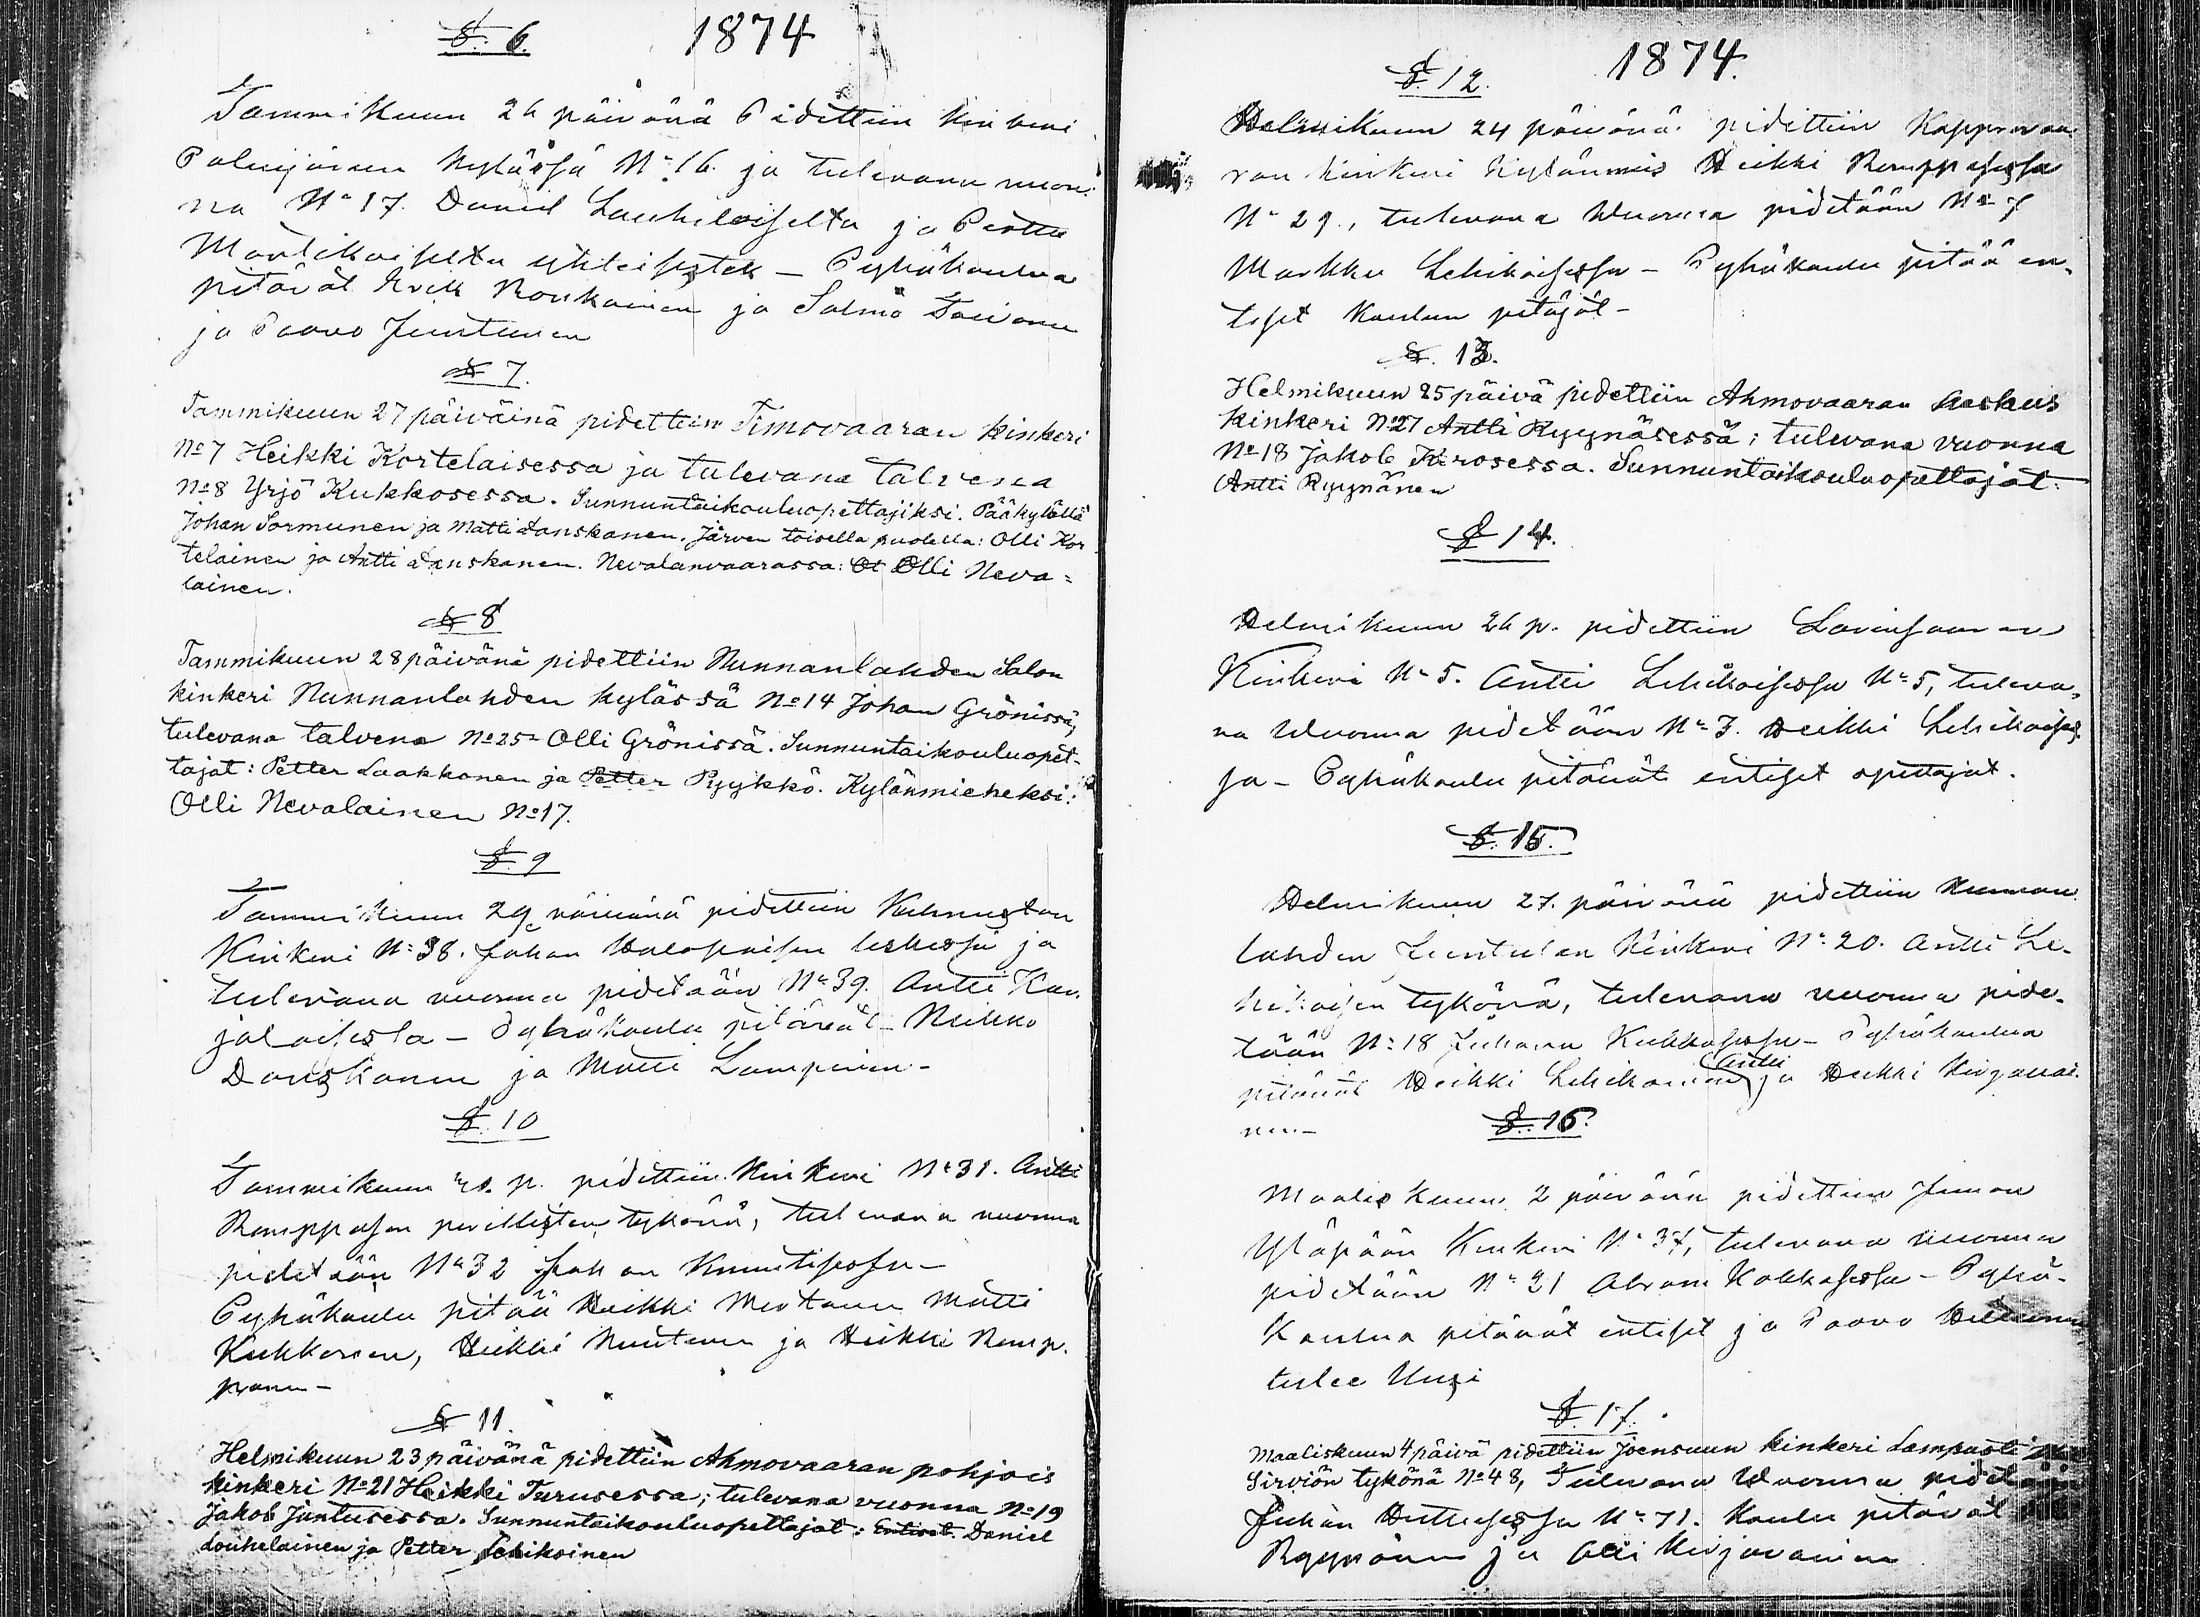 §. 6. 1874
Tammikuun 26 päivänä Pidettiin Kinkeri
Polvijärven Kylässä No 16. ja tulevana vuon-
na No 17. Daniel Louhelaiselta ja Pettu
Martikaiselta yhteisesten — Pyhäkoulua
pitävät Erik Ronkainen ja Salmo Toivanen
ja Paavo Juntunen
§ 7.
Tammikuun 27 päiväinä pidettiin Timovaaran kinkeri
No 7 Heikki Kortelaisessa ja tulevana talvena
No 8 Yrjö Kukkosessa. Sunnuntaikouluopettajiksi. Pääkylällä
Johan Sormunen ja Matti Danskanen. Järven toisella puolella: Olli Kor
telainen ja Antti Danskanen. Nevalanvaarassa: Ol Olli Neva=
lainen.
§ 8
Tammikuun 28 päivänä pidettiin Nunnanlahden Salon
kinkeri Nunnanlahden kylässä No 14 Johan Grönissä,
tulevana talvena No 25 Olli Grönissä. Sunnuntaikouluopet-
tajat: Petter Laakkonen ja Petter Pyykkö. Kylänmieheksi:
Olli Nevalainen No 17.
§. 9
Tammikuun 29 päivänä pidettiin Kuhnustan
Kinkeri No 38. Johan Halopaisen leskessä ja
tulevana vuonna pidetään No 39. Antti Kar.
jalaisesta — Pyhäkoulu pitävät — Heikko
Danskanen ja Matti Lampinen —
§. 10
Tammikuun 30. p. pidettiin Kinkeri No 31. Antti
Romppasen perillisten tykönä, tulevana vuonna
pidetään No 32 Johan Knuutisessa —
Pyhäkoulu pitää Heikki Mertanen Matti
Kukkonen, Heikki Nuutinen ja Heikki Romp.
panen —
§ 11.
Helmikuun 23 päivänä pidettiin Ahmovaaran pohjois
kinkeri No 21 Heikki Turusessa; tulevana vuonna No 19
Jakob Juntusessa. Sunnuntaikouluopettajat: Entiset. Daniel
Louhelainen ja Petter Lehikoinen
§. 12. 1874.
Helmikuun 24 päivänä pidettiin
ran kinkeri Kylänmies Heikki Romppasessa
No 29., tulevana Wuonna pidetään No 7
Markku Lehikoisessa — Pyhäkoulu pitää en-
tiset Koulun pitäjät —
§. 13.
Helmikuun 25 päivä pidettiin Ahmovaaran keskus
kinkeri No 27 Antti Ryynäsessä; tulevana vuonna
No 18 Jakob Kirosessa. Sunnuntaikouluopettajat:
Antti Ryynänen
§ 14.
Helmikuun 26 p. pidettiin
Kinkeri No 5. Antti Lehikoisessa No 5, tuleva-
na Wuonna pidetään No 3. Heikki Lehikoises
sa — Pyhäkoulu pitävät entiset opettajat.
§. 15.
Helmikuun 27. päivänä pidettiin Nunnan
lahden Juntulan Kinkeri No 20. Antti Le-
hikoisen tykönä, tulevana vuonna pide-
tään No 18 Juhana Kukkosessa — Pyhäkoulua
pitävät Heikki Lehikoinen Antti ja Heikki Kirjavai-
nen —
§. 16.
Maaliskuun 2 päivänä pidettiin Juuan
Yläpään Kinkeri No 37, tulevana vuonna
pidetään No 21 Abram Kokkosessa — Pyhä-
Koulua pitävät entiset ja Paavo
tulee Uusi
§. 17.
Maaliskuun 4 päivä pidettiin Joensuun kinkeri Lampuoti
Sirviön tykönä No 48, Tulevana Wuonna pidetään
Juhan Huttusessa No 71. Koulu pitävät
Ryynänen ja Olli Kirjavainen